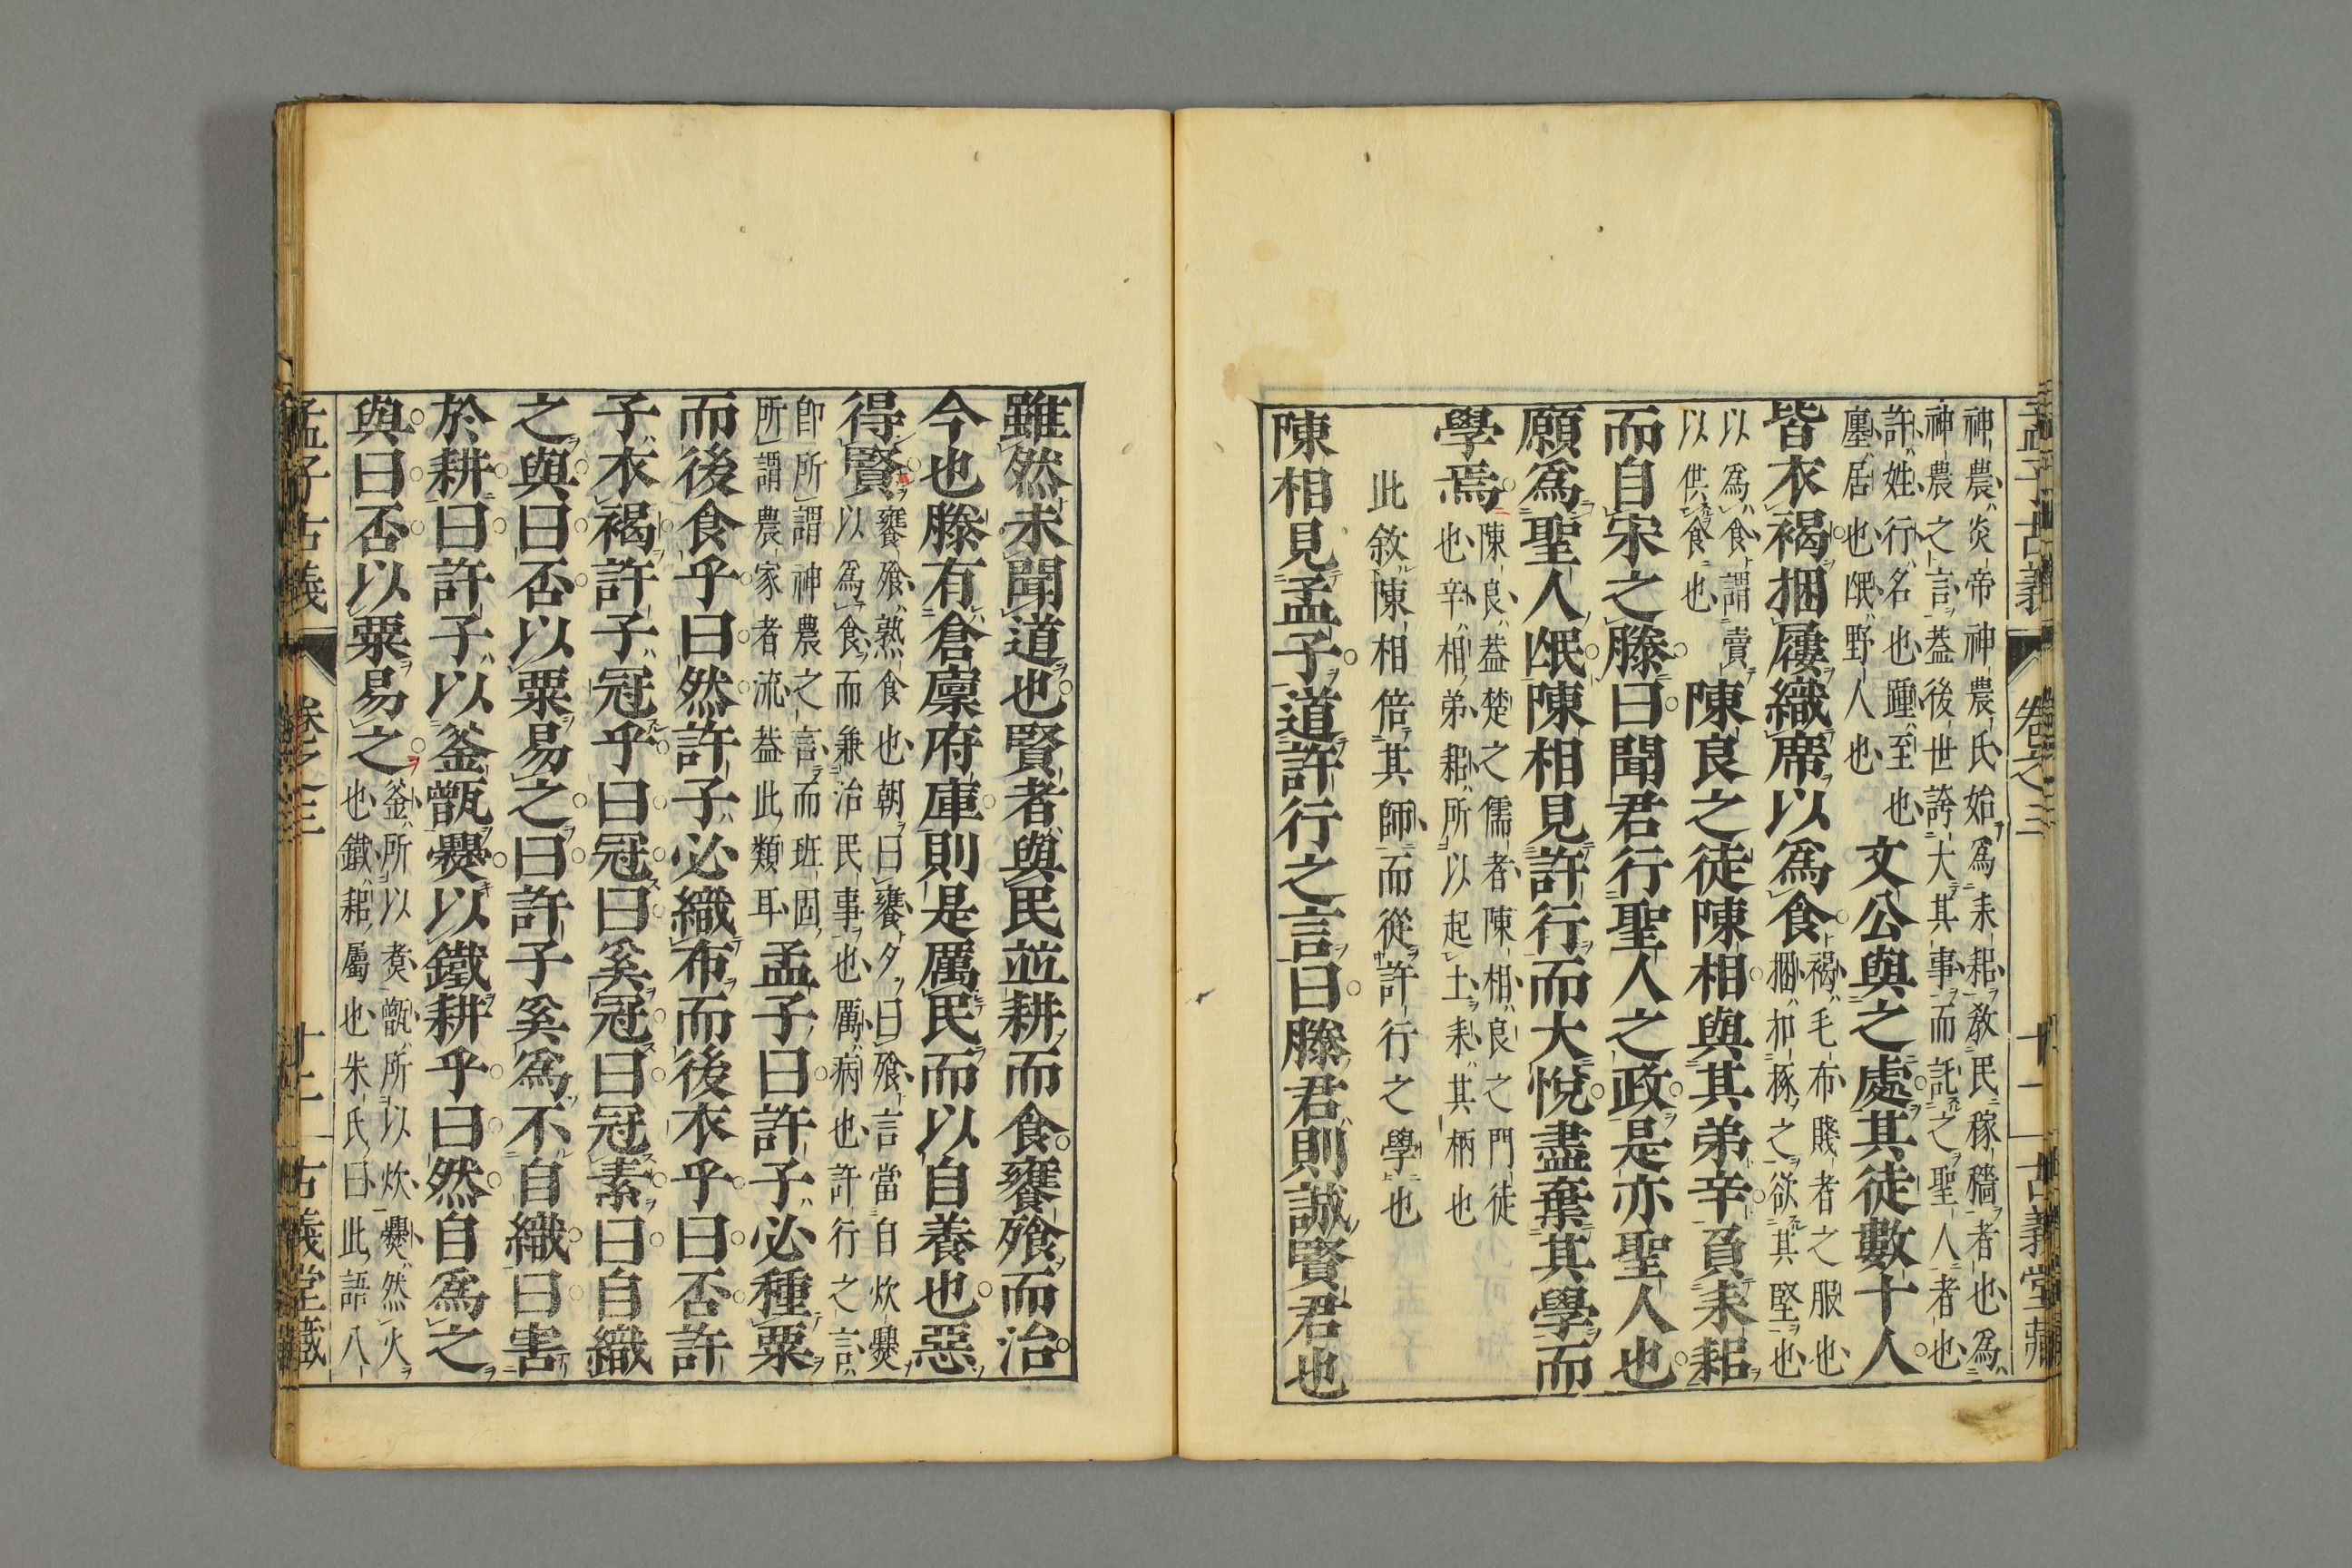 孟子古義 卷之三 十一 古義堂藏
神農炎帝神農氏始爲耒耜敎民稼穡者也爲
神農之言葢後世誇大其事而託之聖人者也
許姓行名也踵至也
廛居也氓野人也
文公與之處其徒數十人
皆衣褐捆屨織席以爲食
褐毛布賤者之服也
捆扣㧻之欲其堅也
以爲食謂賣
以供食也
陳良之徒陳相與其弟辛負耒耜
而自宋之滕曰聞君行聖人之政是亦聖人也
願爲聖人氓陳相見許行而大悅盡棄其學而
學焉
陳良葢楚之儒者陳相良之門徒
也辛相弟耜所以起土耒其柄也
此敘陳相倍其師而從許行之學也
陳相見孟子道許行之言曰滕君則誠賢君也
雖然未聞道也賢者與民並耕而食饔飧而治
今也滕有倉廩府庫則是厲民而以自養也惡
得賢
饔飧熟食也朝曰饔夕曰飧言當自炊爨
以爲食而兼治民事也厲病也許行之言
卽所謂神農之言而班固
所謂農家者流葢此類耳
孟子曰許子必種粟
而後食乎曰然許子必織布而後衣乎曰否許
子衣褐許子冠乎曰冠曰奚冠曰冠素曰自織
之與曰否以粟易之曰許子奚爲不自織曰害
於耕曰許子以釜甑爨以鐵耕乎曰然自爲之
與曰否以粟易之
釜所以煑甑所以炊爨然火
也鐵耜屬也朱氏曰此語八
孟子古義 卷之三 十二 古義堂藏